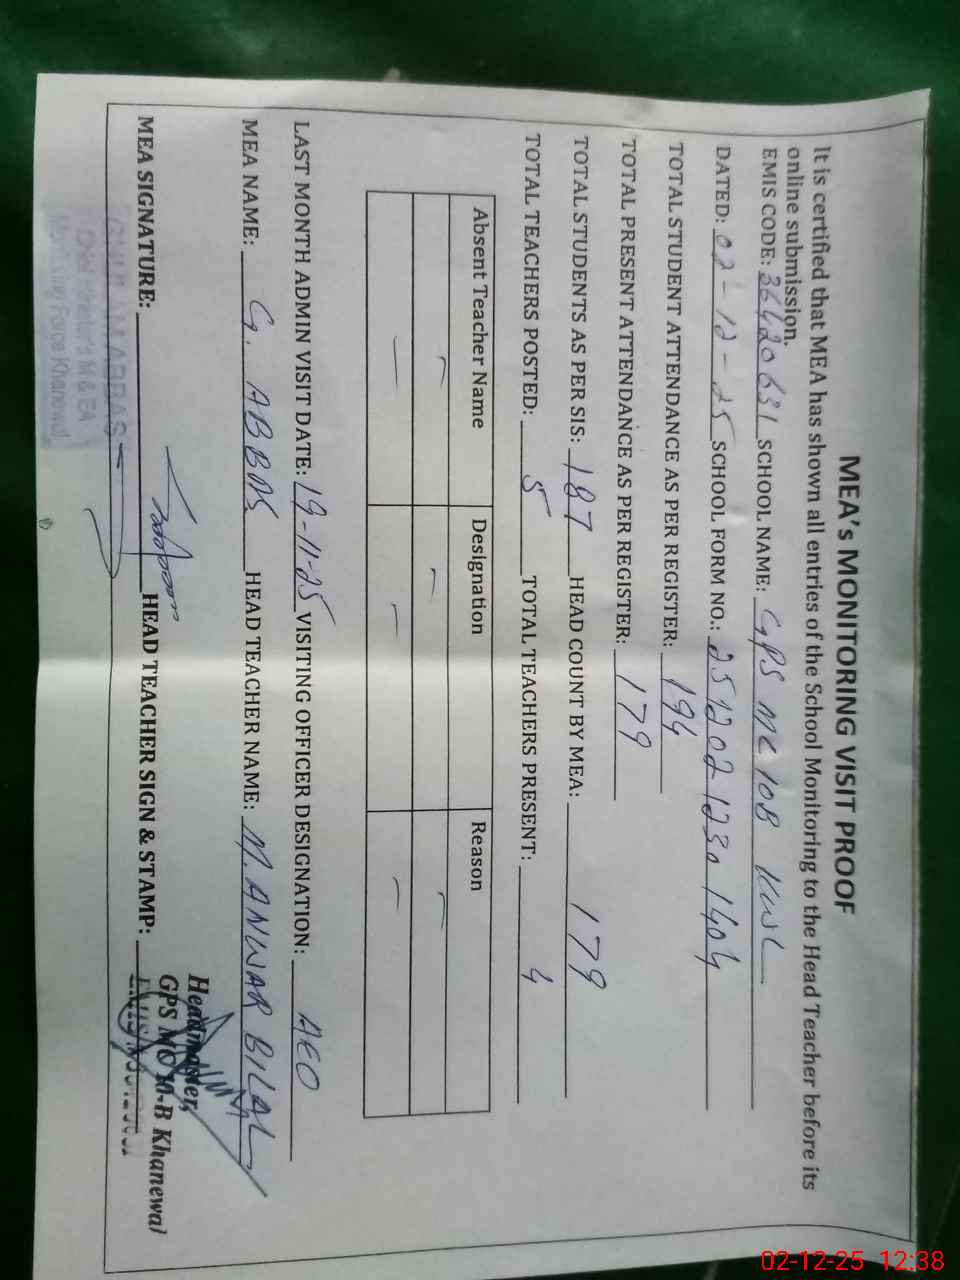 MEA's MONITORING VISIT PROOF
It is certified that MEA has shown all entries of the School Monitoring to the Head Teacher before its
online submission.
EMIS CODE: 36420631 SCHOOL NAME: GPS MC 10B KWL
DATED: 02-12-25 SCHOOL FORM NO.: 25120212301404
TOTAL STUDENT ATTENDANCE AS PER REGISTER: 194
TOTAL PRESENT ATTENDANCE AS PER REGISTER: 179
TOTAL STUDENTS AS PER SIS: 187 HEAD COUNT BY MEA: 179
TOTAL TEACHERS POSTED: 5 TOTAL TEACHERS PRESENT: 4
Absent Teacher Name Designation Reason
— — —
— — —
LAST MONTH ADMIN VISIT DATE: 19-11-25 VISITING OFFICER DESIGNATION: AEO
MEA NAME: G. ABBAS HEAD TEACHER NAME: M. ANWAR BILAL
MEA SIGNATURE: HEAD TEACHER SIGN & STAMP:
Headmaster,
GPS MC 10-B Khanewal
GHULAM ABBAS
Chief Minister's M & EA
Monitoring Force Khanewal
02-12-25 12:38